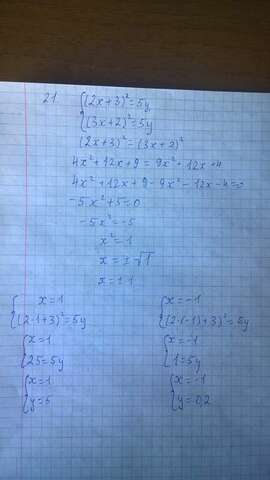 21 {(2x+3)²=5y
{(3x+2)²=5y
(2x+3)²=(3x+2)²
4x²+12x+9=9x²+12x+4
4x²+12x+9-9x²-12x-4=0
-5x²+5=0
-5x²=-5
x²=1
x=±√1
x=±1
{x=1
{(2·1+3)²=5y
{x=1
{25=5y
{x=1
{y=5
{x=-1
{(2·(-1)+3)²=5y
{x=-1
{1=5y
{x=-1
{y=0,2